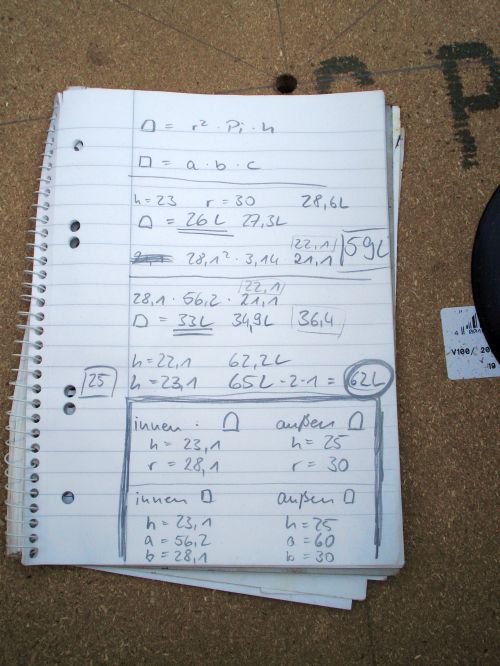 ⌓ = r² · Pi · h
□ = a · b · c
h = 23 r = 30 28,6L
⌓ = 26L 27,3L
28,1² · 3,14 · 21,1 [22,1] 59L
28,1 · 56,2 · 21,1 [22,1]
□ = 33L 34,9L 36,4
h = 22,1 62,2L
25 h = 23,1 65L - 2 - 1 = 62L
innen: ⌓ außen ⌓
h = 23,1 h = 25
r = 28,1 r = 30
innen □ außen □
h = 23,1 h = 25
a = 56,2 a = 60
b = 28,1 b = 30
V100/ 20